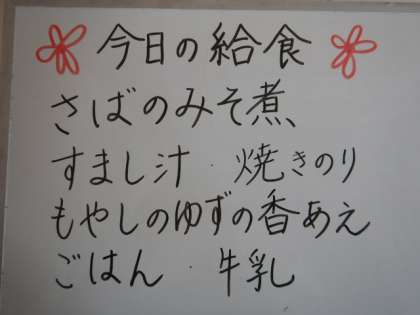 今日の給食
さばのみそ煮
すまし汁・焼きのり
もやしのゆずの香あえ
ごはん・牛乳